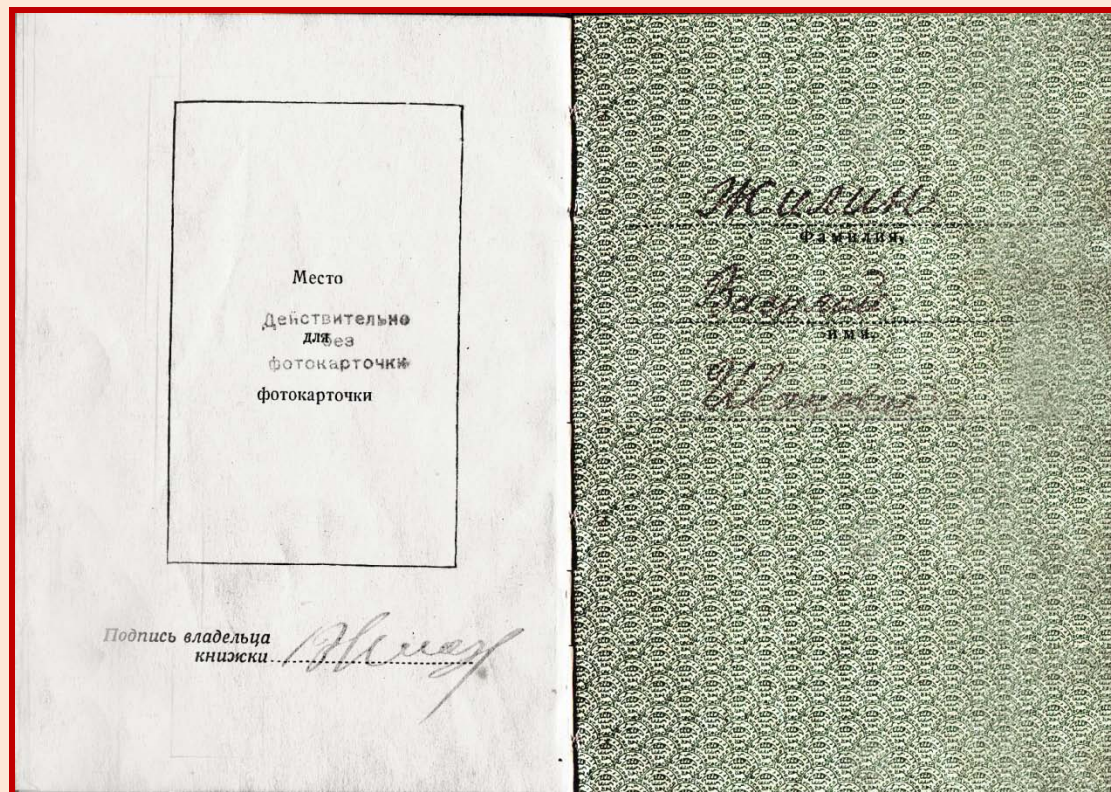 Место
Действительно
для без
фотокарточки
фотокарточки
Подпись владельца
книжки
Жилин
Фамилия,
Василий
имя,